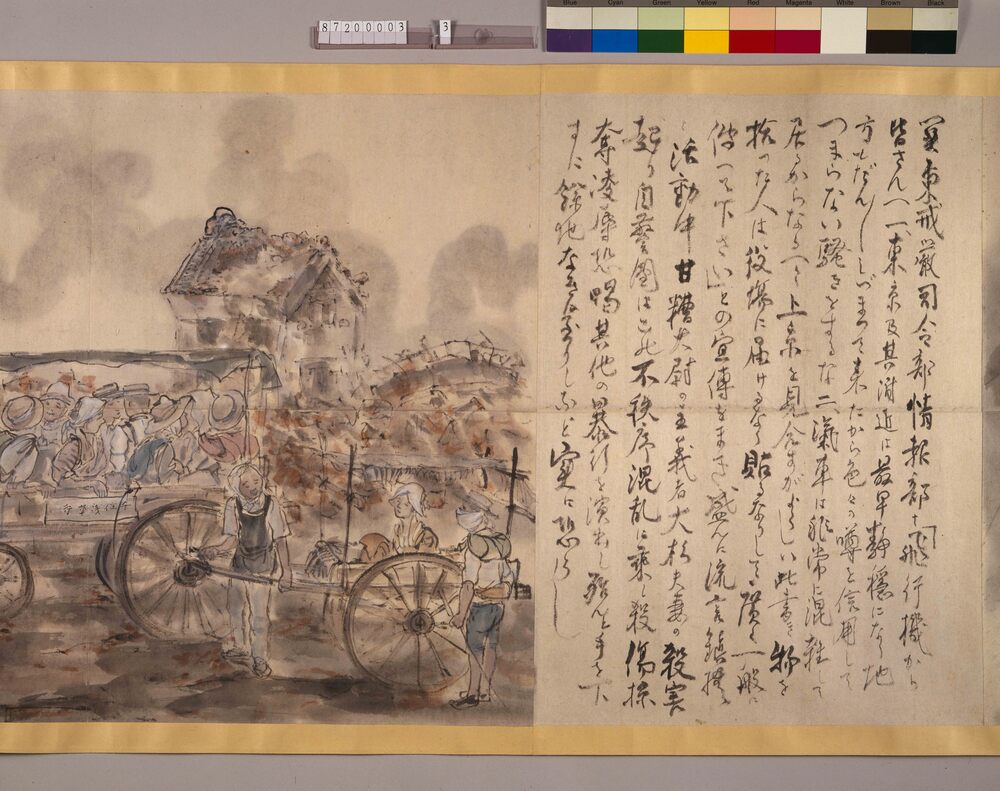 87200003 3
Blue Cyan Green Yellow Red Magenta White Brown Black
関東戒嚴司令部情報部 飛行機から
皆さんへ一、東京及其附近は最早静穏になり地
方もだん〳〵しづまつて来たから色々の噂を信用して
つまらない騒きをするな二、汽車は非常に混雑して
居るからなるべく上京を見合すがよい此書き物を
拾つた人は役場に届けるなり貼るなりして廣く一般に
傳へて下さい」との宣傳をまき盛んに流言鎮撫に
活動中甘糟大尉の主義者大杉夫妻の殺害
起り自警團はこの不秩序混乱に乗し殺傷掠
奪凌辱恐喝其他の暴行を演出し殆んと手を下
すに餘地なき 実に恐ろし